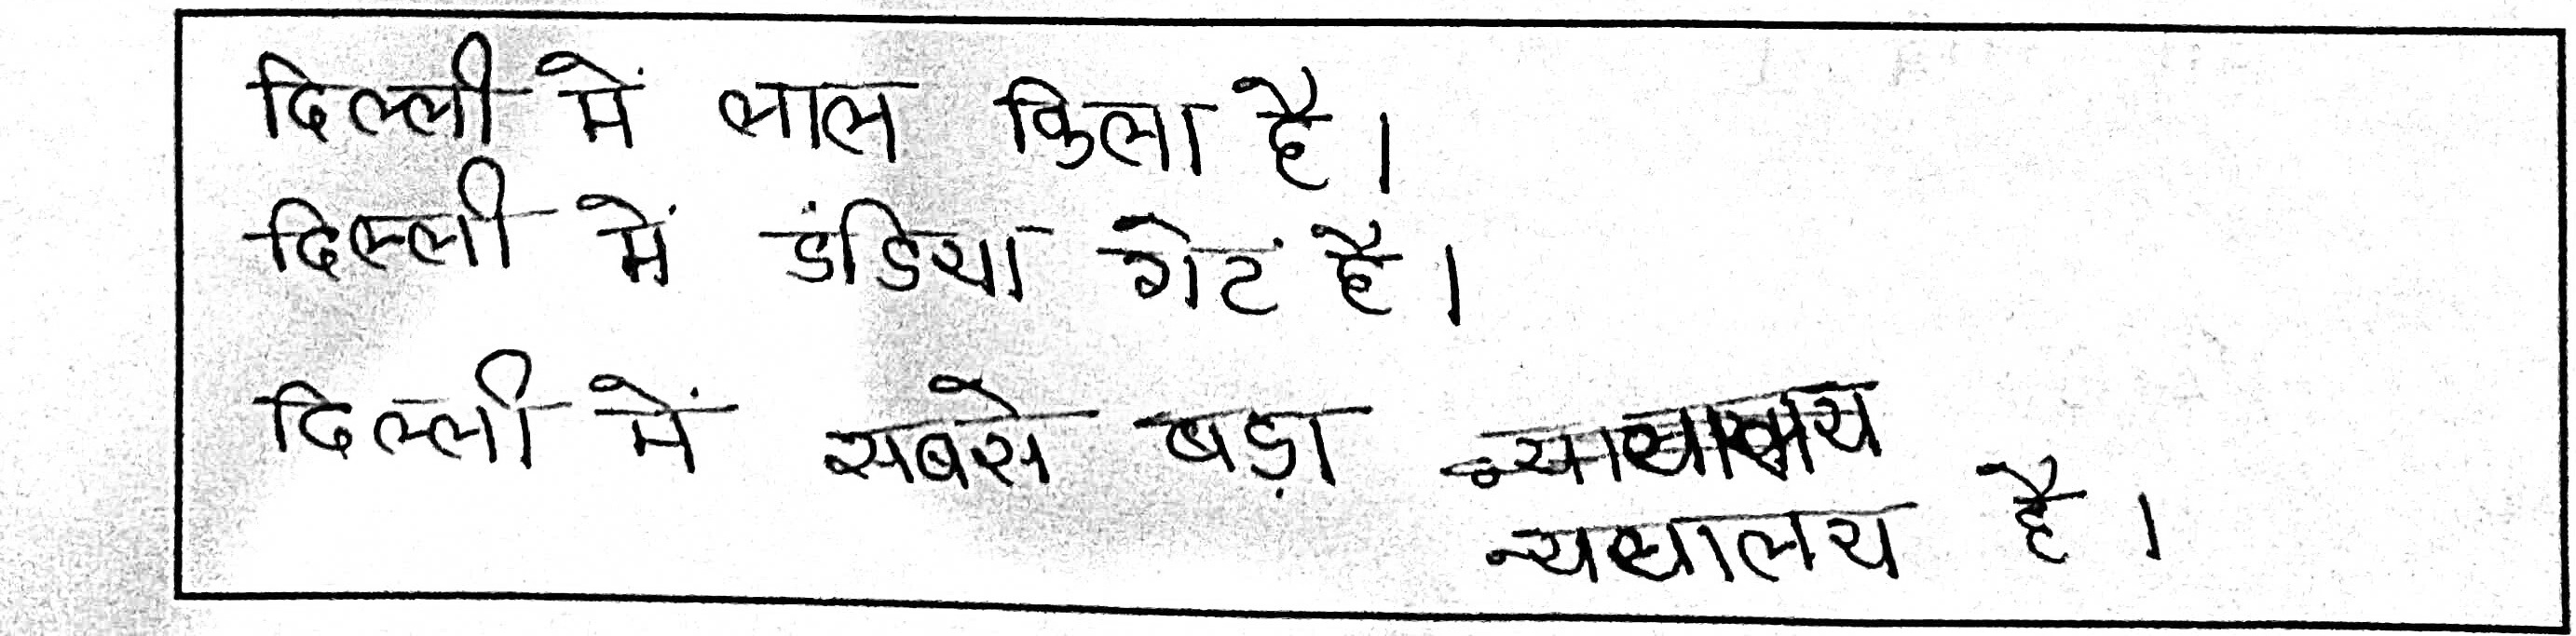 दिल्ली में लाल किला है।
दिल्ली में इंडिया गेट है।
दिल्ली में सबसे बड़ा
न्ययालय है।